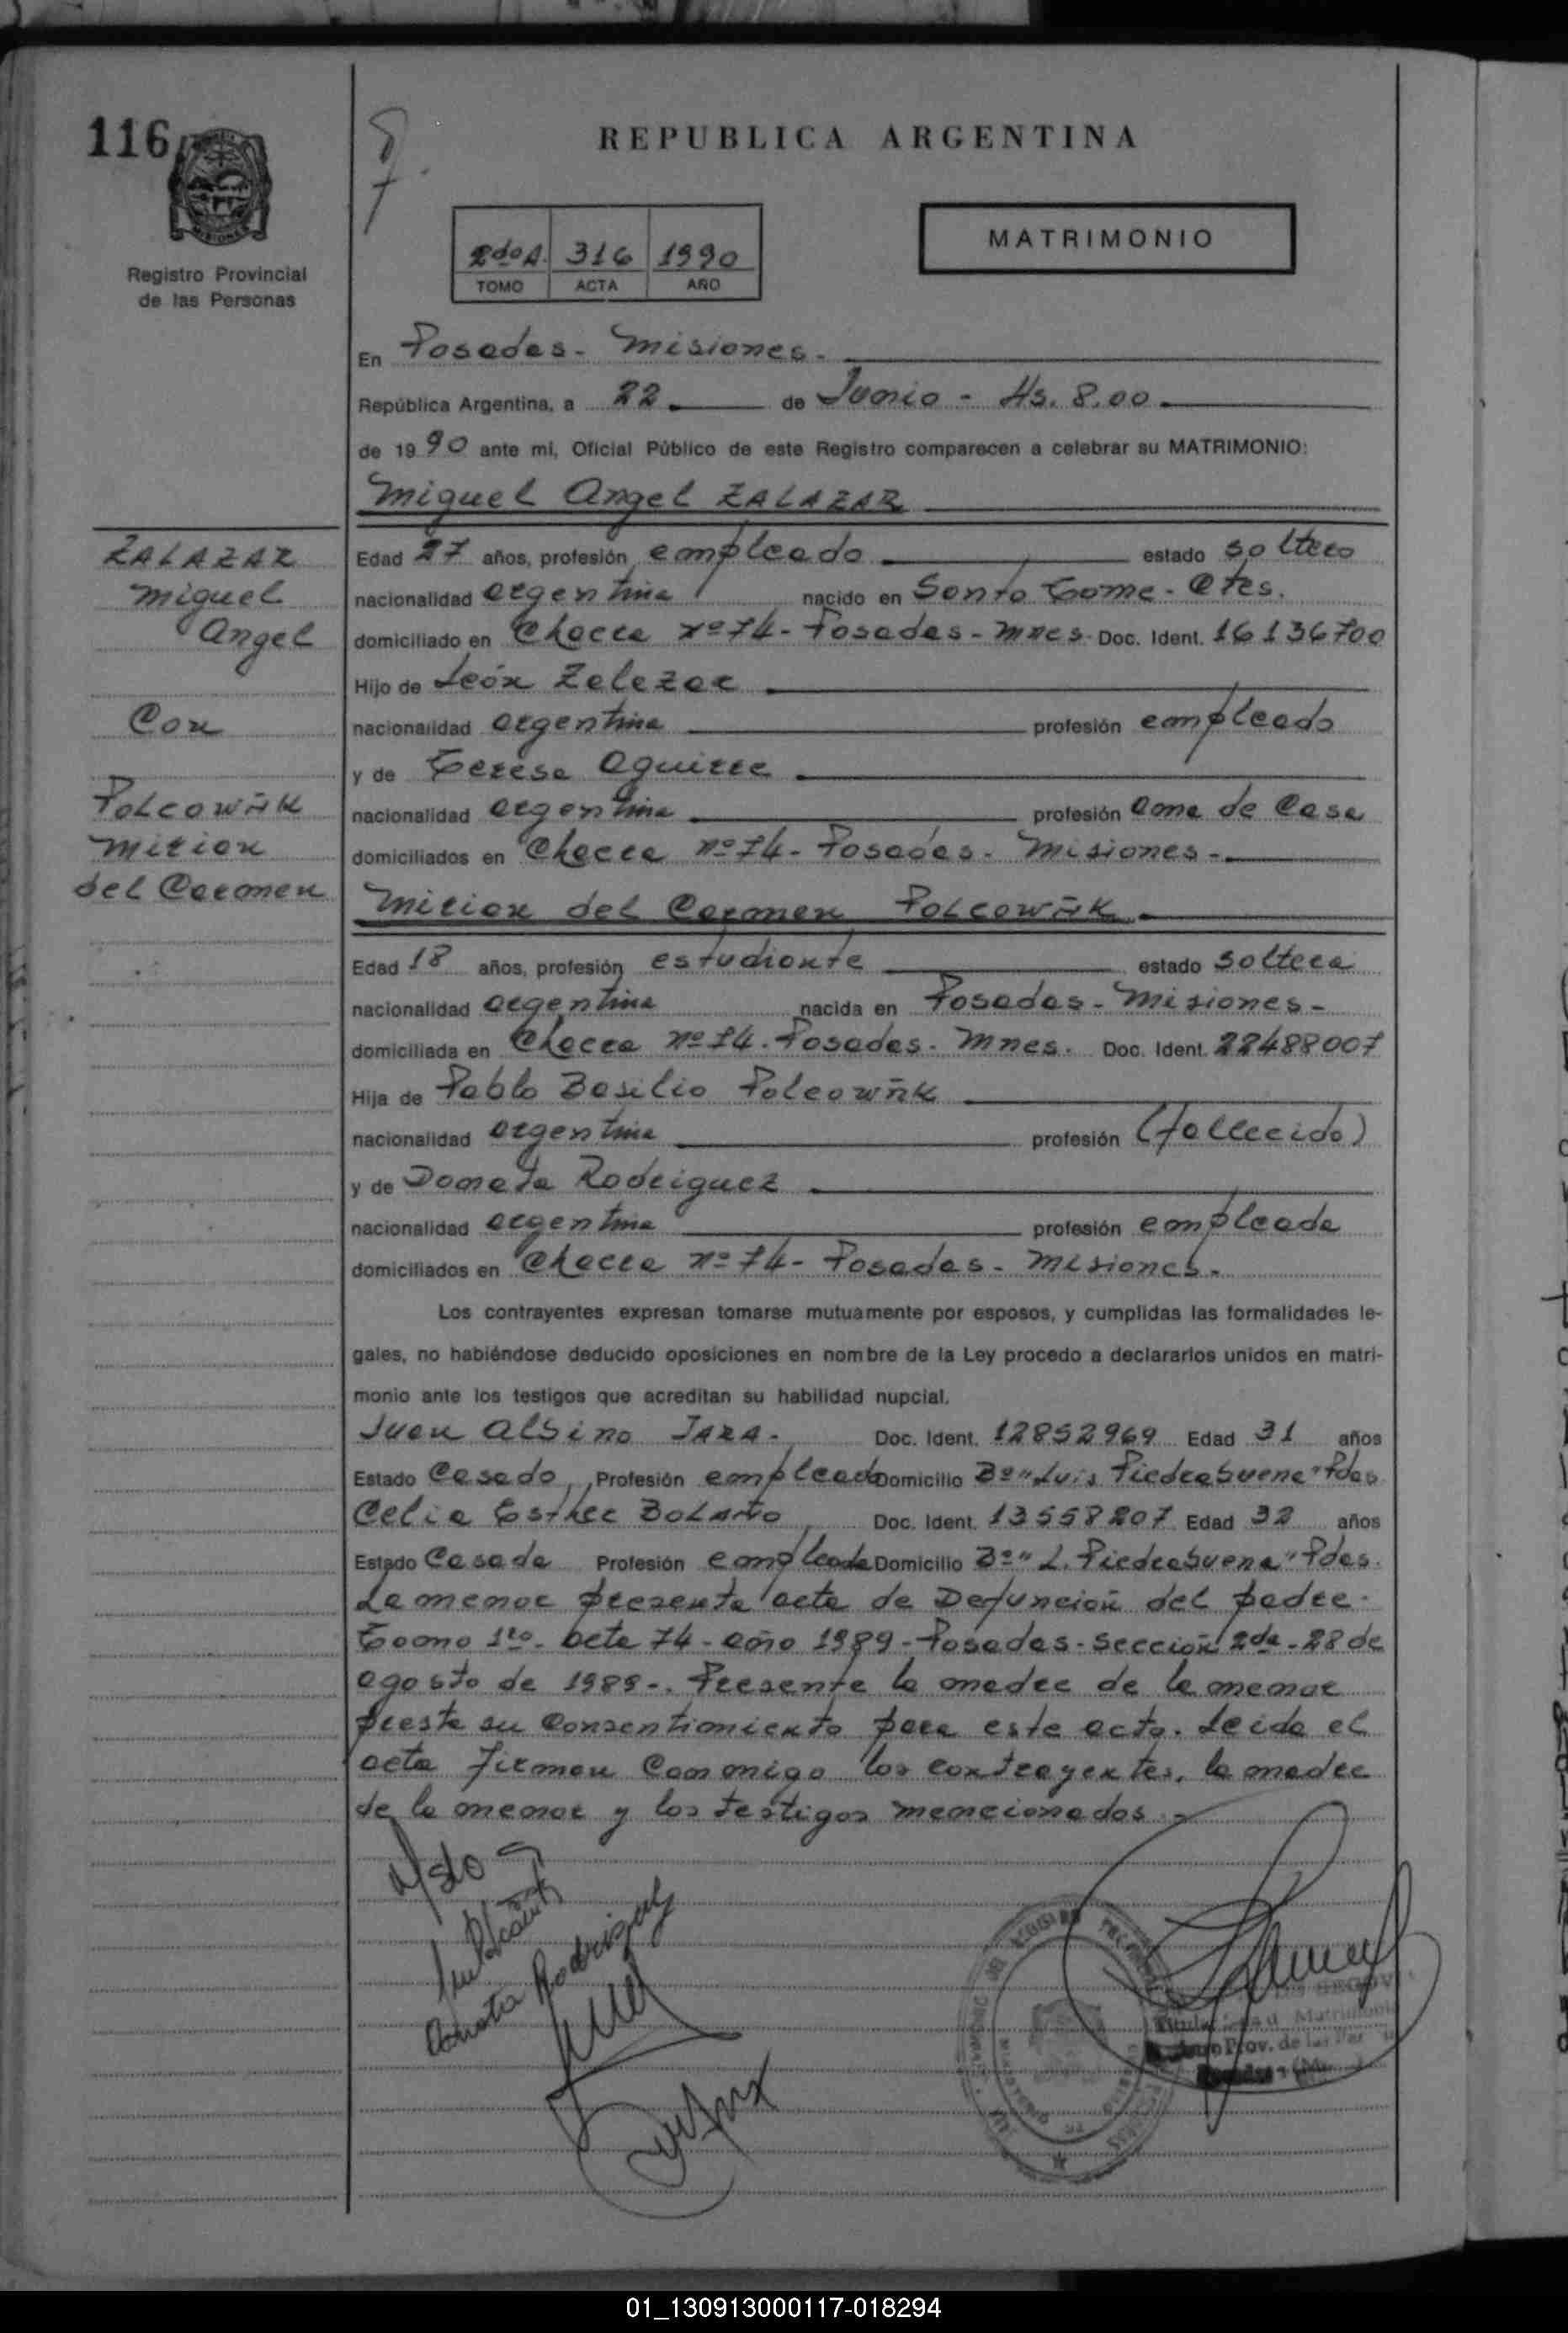 116
Registro Provincial
de las Personas
REPUBLICA ARGENTINA
MATRIMONIO
2do A. 316 1990
TOMO ACTA AÑO
En Posadas - Misiones.
República Argentina, a 22 de Junio - Hs. 8.00
de 1990 ante mi, Oficial Público de este Registro comparecen a celebrar su MATRIMONIO:
Miguel Angel ZALAZAR
ZALAZAR
Miguel
Angel
Con
POLCOWÑK
Mirian
del Carmen
Edad 27 años, profesión empleado estado soltero
nacionalidad argentina nacido en Santo Tome - Ctes.
domiciliado en Chacra Nº 74 - Posadas - Mnes. Doc. Ident. 16136700
Hijo de León Zalazar
nacionalidad argentina profesión empleado
y de Teresa Aguirre
nacionalidad argentina profesión ama de Casa
domiciliados en Chacra Nº 74 - Posadas - Misiones -
Mirian del Carmen POLCOWÑK
Edad 18 años, profesión estudiante estado soltera
nacionalidad argentina nacida en Posadas - Misiones -
domiciliada en Chacra Nº 74. Posadas - Mnes. Doc. Ident. 22488007
Hija de Pablo Basilio Polcowñk
nacionalidad argentina profesión (fallecido)
y de Donata Rodriguez
nacionalidad argentina profesión empleada
domiciliados en Chacra Nº 74 - Posadas - Misiones.
Los contrayentes expresan tomarse mutuamente por esposos, y cumplidas las formalidades le-
gales, no habiéndose deducido oposiciones en nombre de la Ley procedo a declararlos unidos en matri-
monio ante los testigos que acreditan su habilidad nupcial.
Juan Albino JARA - Doc. Ident. 12852969 Edad 31 años
Estado Casado, Profesión empleado Domicilio Bº "Luis Piedrabuena" Pdas.
Celia Esther BOLAÑO Doc. Ident. 13558207 Edad 32 años
Estado Casada Profesión empleada Domicilio Bº "L. Piedrabuena" Pdas.
La menor presenta acta de Defunción del padre.
Tomo 1ro. acta 74 - año 1989 - Posadas - sección 2da - 28 de
agosto de 1989 -. Presente la madre de la menor
presta su Consentimiento para este acto. Leida el
acta firman Conmigo los contrayentes, la madre
de la menor y los testigos mencionados. -
Donata Rodriguez
Prov. de las
01_130913000117-018294